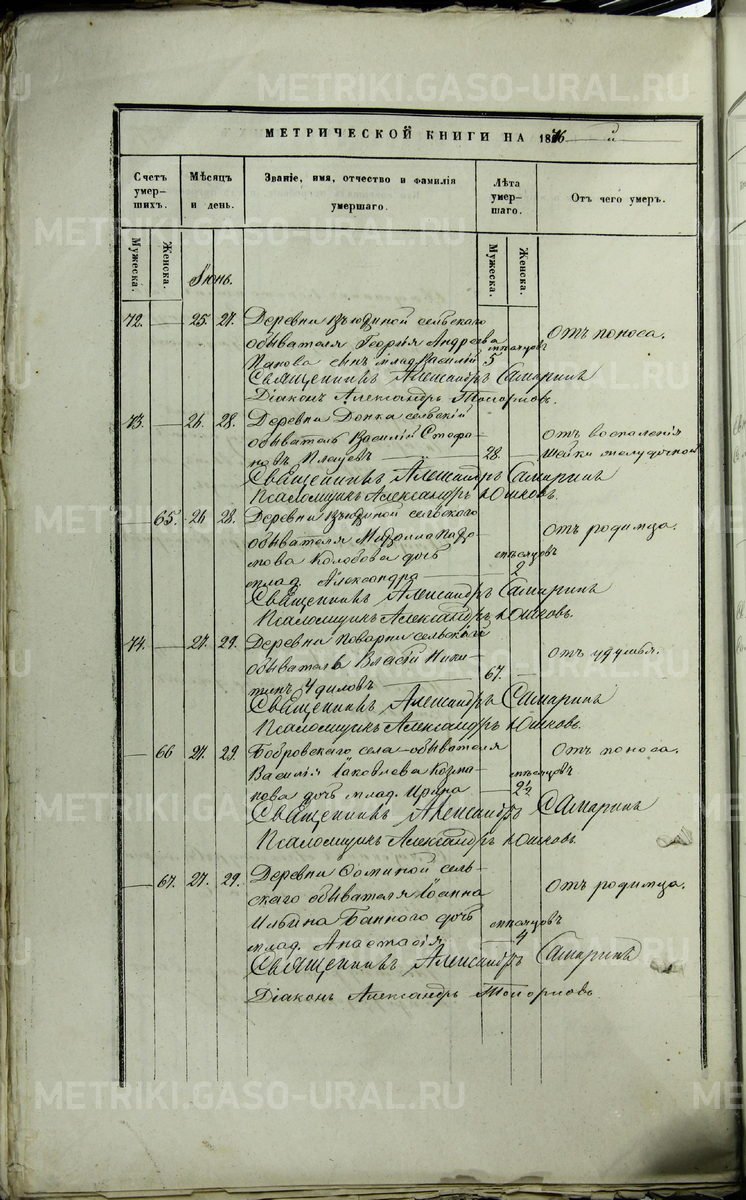 МЕТРИЧЕСКОЙ КНИГИ НА 1876 й
Счетъ умер-шихъ. Мѣсяцъ и день. Званіе, имя, отчество и фамилія умершаго. Лѣта умер-шаго. Отъ чего умеръ.
Мужеска. Женска. Іюнь. Мужеска. Женска.
72. — 25. 27. Деревни сельскаго
обывателя Георгія Андреева мѣсяцовъ Отъ поноса.
Панова сынъ млад. Василій 5
Священникъ Александръ Самаринъ
Діаконъ Александръ Топорковъ.
73. — 26. 28. Деревни сельскій
обыватель Василій Стефа- Отъ воспаленія
новъ — 28. — шейки желудочной
Священникъ Александръ Самаринъ
Псаломщикъ Александръ Юшковъ.
— 65. 26. 28. Деревни сельскаго
обывателя Отъ родимца.
Колобова дочь мѣсяцовъ
млад. Александра — 2
Священникъ Александръ Самаринъ
Псаломщикъ Александръ Юшковъ.
74. — 27. 29. Деревни Поварни сельскій
обыватель Власій Ники- Отъ удушья.
тинъ Удиловъ — 67.
Священникъ Александръ Самаринъ
Псаломщикъ Александръ Юшковъ.
— 66 27. 29. Бобровскаго села обывателя Отъ поноса.
Василія Іаковлева Корма- мѣсяцовъ
кова дочь млад. Ирина — 2½
Священникъ Александръ Самаринъ
Псаломщикъ Александръ Юшковъ.
— 67. 27. 29. Деревни Ѳоминой сель-
скаго обывателя Іоанна Отъ родимца.
Ильина Банного дочь мѣсяцовъ
млад. Анастасія 4
Священникъ Александръ Самаринъ
Діаконъ Александръ Топорковъ
METRIKI.GASO-URAL.RU